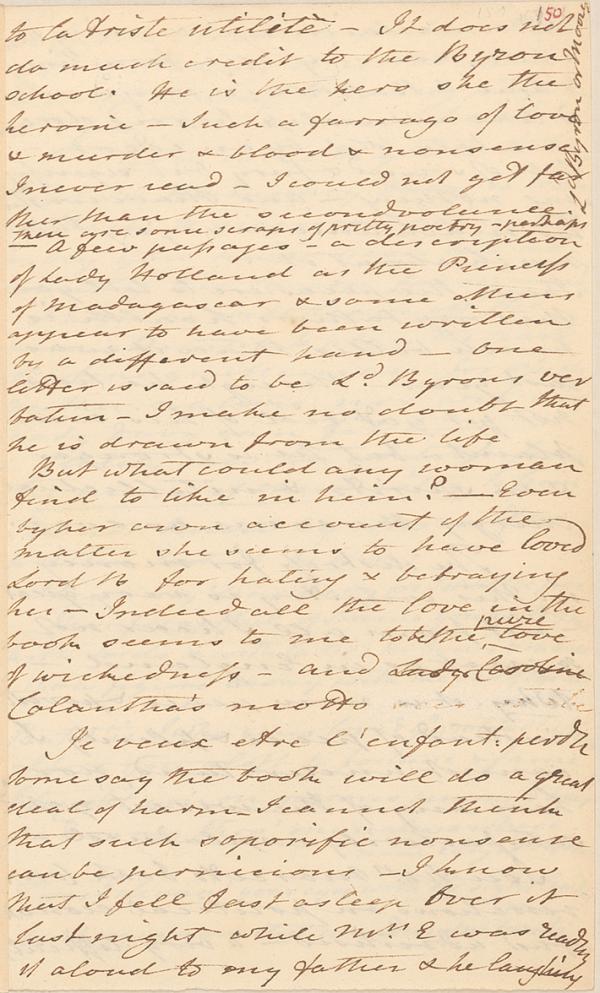 150
to la triste utilité – It does not
do much credit to the Byron
school. He is the hero she the
heroine – Such a farrago of love
& murder & blood & nonsense
I never read – I could not get far
ther than the second volume.
There are some scraps of pretty poetry – perhaps
Ld Byron or Moore
– A few passages – a description
of Lady Holland as the Princess
of Madagascar & some others
appear to have been written
by a different hand – one
letter is said to be Ld. Byrons ver
batim – I make no doubt that
he is drawn from the life
But what could any woman
find to like in him? – Even
by her own account of the
matter she seems to have loved
Lord B for hating & betraying
her – Indeed all the love in the
book seems to me to be the pure love
of wickedness – and Lady Caroline
Calantha's motto
Je veux etre l'enfant perdu
some say the book will do a great
deal of harm – I cannot think
that such soporific nonsense
can be pernicious – I know
that I fell fast asleep over it
last night while Mrs E was reading
it aloud to my father & he laughing